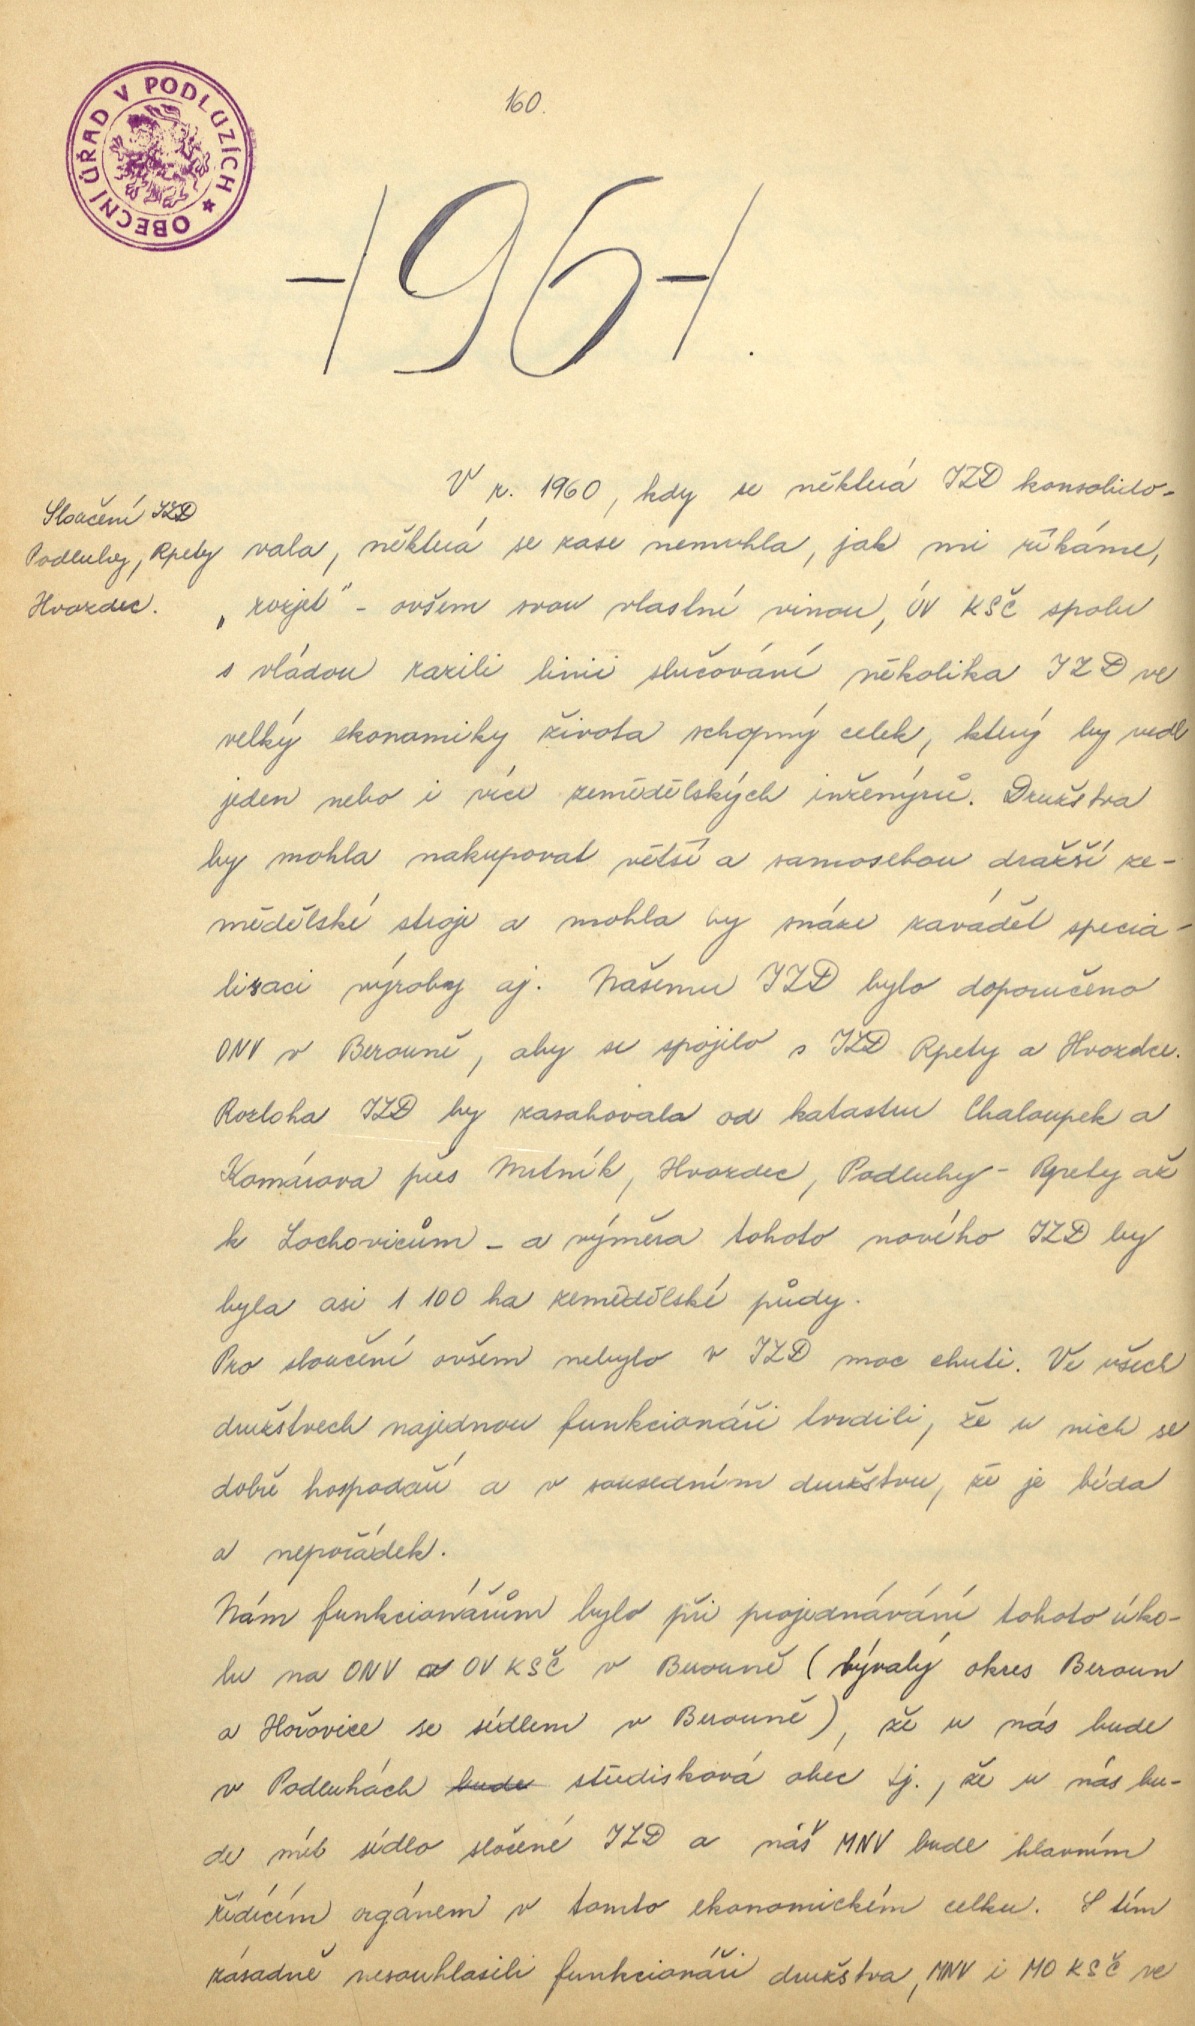 OBECNÍ ÚŘAD V PODLUZÍCH
160.
1961.
Sloučení JZD
Podluhy, Rpety
Hvozdec.
V r. 1960, kdy se některá JZD konsolido-
vala, některá se zase nemohla, jak mi říkáme,
„rozjet" - ovšem svou vlastní vinou, ÚV KSČ spolu
s vládou razili linii slučování několika JZD ve
velký ekonamiky života schopný celek, který by vedl
jeden nebo i více zemědělských inženýrů. Družstva
by mohla nakupovat větší a samosebou dražší ze-
mědělské stroje a mohla by snáze zavádět specia-
lisaci výroby aj. Našemu JZD bylo doporučeno
ONV v Berouně, aby se spojilo s JZD Rpety a Hvozdec.
Rozloha JZD by zasahovala od katastru Chaloupek a
Komárova přes Mrtník, Hvozdec, Podluhy - Rpety až
k Lochovicům - a výměra tohoto nového JZD by
byla asi 1 100 ha zemědělské půdy.
Pro sloučení ovšem nebylo v JZD moc chuti. Ve všech
družstvech najednou funkcionáři tvrdili, že u nich se
dobře hospodaří a v sousedním družstvu, že je bída
a nepořádek.
Nám funkcionářům bylo při projednávání tohoto úko-
lu na ONV a OV KSČ v Berouně (bývalý okres Beroun
a Hořovice se sídlem v Berouně), že u nás bude
v Podluhách bude středisková obec tj., že u nás bu-
de mít sídlo sločené JZD a náš MNV bude hlavním
řídícím orgánem v tomto ekonomickém celku. S tím
zásadně nesouhlasili funkcionáři družstva, MNV i MO KSČ ve